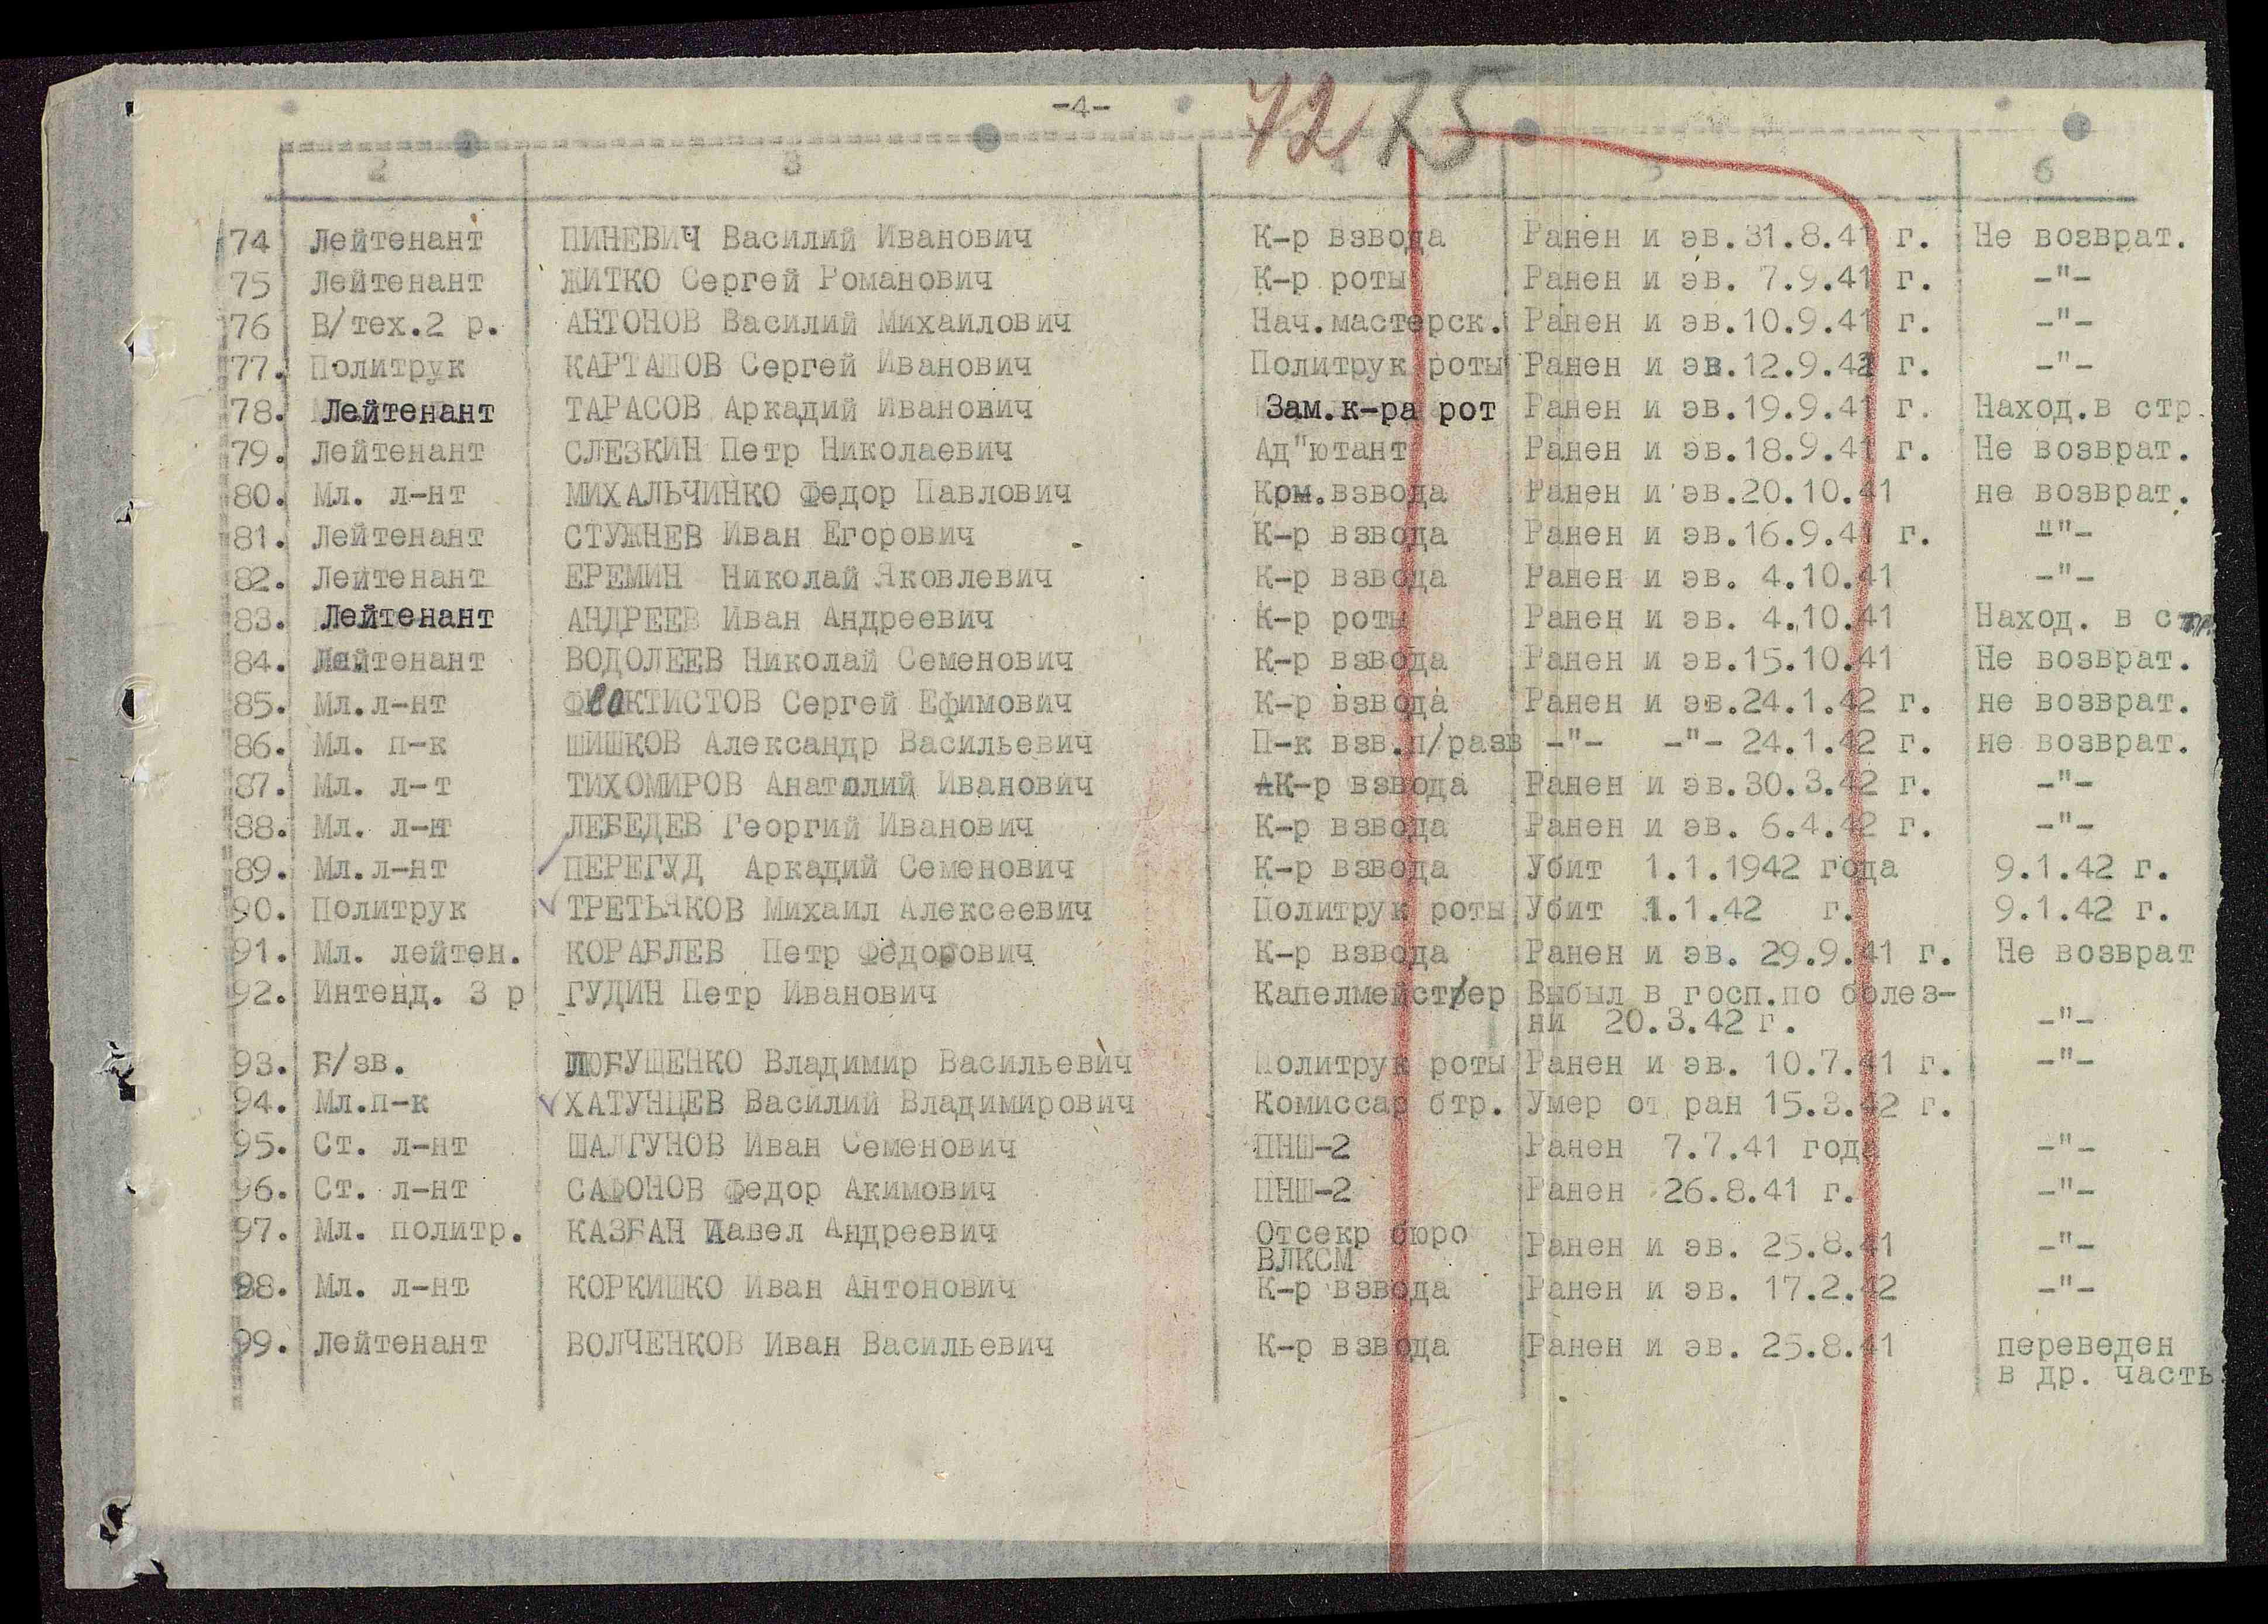 -4-
72 75
2 3 4 5 6
74 Лейтенант ПИНЕВИЧ Василий Иванович К-р взвода Ранен и эв.31.8.41 г. Не возврат.
75 Лейтенант ЖИТКО Сергей Романович К-р роты Ранен и эв. 7.9.41 г. -"-
76 В/тех.2 р. АНТОНОВ Василий Михаилович Нач.мастерск. Ранен и эв.10.9.41 г. -"-
77. Политрук КАРТАШОВ Сергей Иванович Политрук роты Ранен и эв.12.9.41 г. -"-
78. Лейтенант ТАРАСОВ Аркадий Иванович Зам.к-ра рот Ранен и эв.19.9.41 г. Наход.в стр.
79. Лейтенант СЛЕЗКИН Петр Николаевич Ад"ютант Ранен и эв.18.9.41 г. Не возврат.
80. Мл. л-нт МИХАЛЬЧИНКО Федор Павлович Крм.взвода Ранен и эв.20.10.41 не возврат.
81. Лейтенант СТУЖНЕВ Иван Егорович К-р взвода Ранен и эв.16.9.41 г. -"-
82. Лейтенант ЕРЕМИН Николай Яковлевич К-р взвода Ранен и эв. 4.10.41 -"-
83. Лейтенант АНДРЕЕВ Иван Андреевич К-р роты Ранен и эв. 4.10.41 Наход. в стр.
84. Лейтенант ВОДОЛЕЕВ Николай Семенович К-р взвода Ранен и эв.15.10.41 Не возврат.
85. Мл.л-нт ФЕОКТИСТОВ Сергей Ефимович К-р взвода Ранен и эв.24.1.42 г. не возврат.
86. Мл. п-к ШИШКОВ Александр Васильевич П-к взв.п/разв -"- -"- 24.1.42 г. не возврат.
87. Мл. л-т ТИХОМИРОВ Анатолий Иванович К-р взвода Ранен и эв.30.3.42 г. -"-
88. Мл. л-нт ЛЕБЕДЕВ Георгий Иванович К-р взвода Ранен и эв. 6.4.42 г. -"-
89. Мл.л-нт ПЕРЕГУД Аркадий Семенович К-р взвода Убит 1.1.1942 года 9.1.42 г.
90. Политрук ТРЕТЬЯКОВ Михаил Алексеевич Политрук роты Убит 1.1.42 г. 9.1.42 г.
91. Мл. лейтен. КОРАБЛЕВ Петр Федорович К-р взвода Ранен и эв. 29.9.41 г. Не возврат
92. Интенд. 3 р ГУДИН Петр Иванович Капелмейстер Выбыл в госп.по болез-
ни 20.3.42 г. -"-
93. Б/зв. ЛЮБУЩЕНКО Владимир Васильевич Политрук роты Ранен и эв. 10.7.41 г. -"-
94. Мл.п-к ХАТУНЦЕВ Василий Владимирович Комиссар бтр. Умер от ран 15.3.42 г.
95. Ст. л-нт ШАЛГУНОВ Иван Семенович ПНШ-2 Ранен 7.7.41 года -"-
96. Ст. л-нт САФОНОВ Федор Акимович ПНШ-2 Ранен 26.8.41 г. -"-
97. Мл. политр. КАЗБАН Павел Андреевич Отсекр бюро
ВЛКСМ Ранен и эв. 25.8.41 -"-
98. Мл. л-нт КОРКИШКО Иван Антонович К-р взвода Ранен и эв. 17.2.42 -"-
99. Лейтенант ВОЛЧЕНКОВ Иван Васильевич К-р взвода Ранен и эв. 25.8.41 переведен
в др. часть